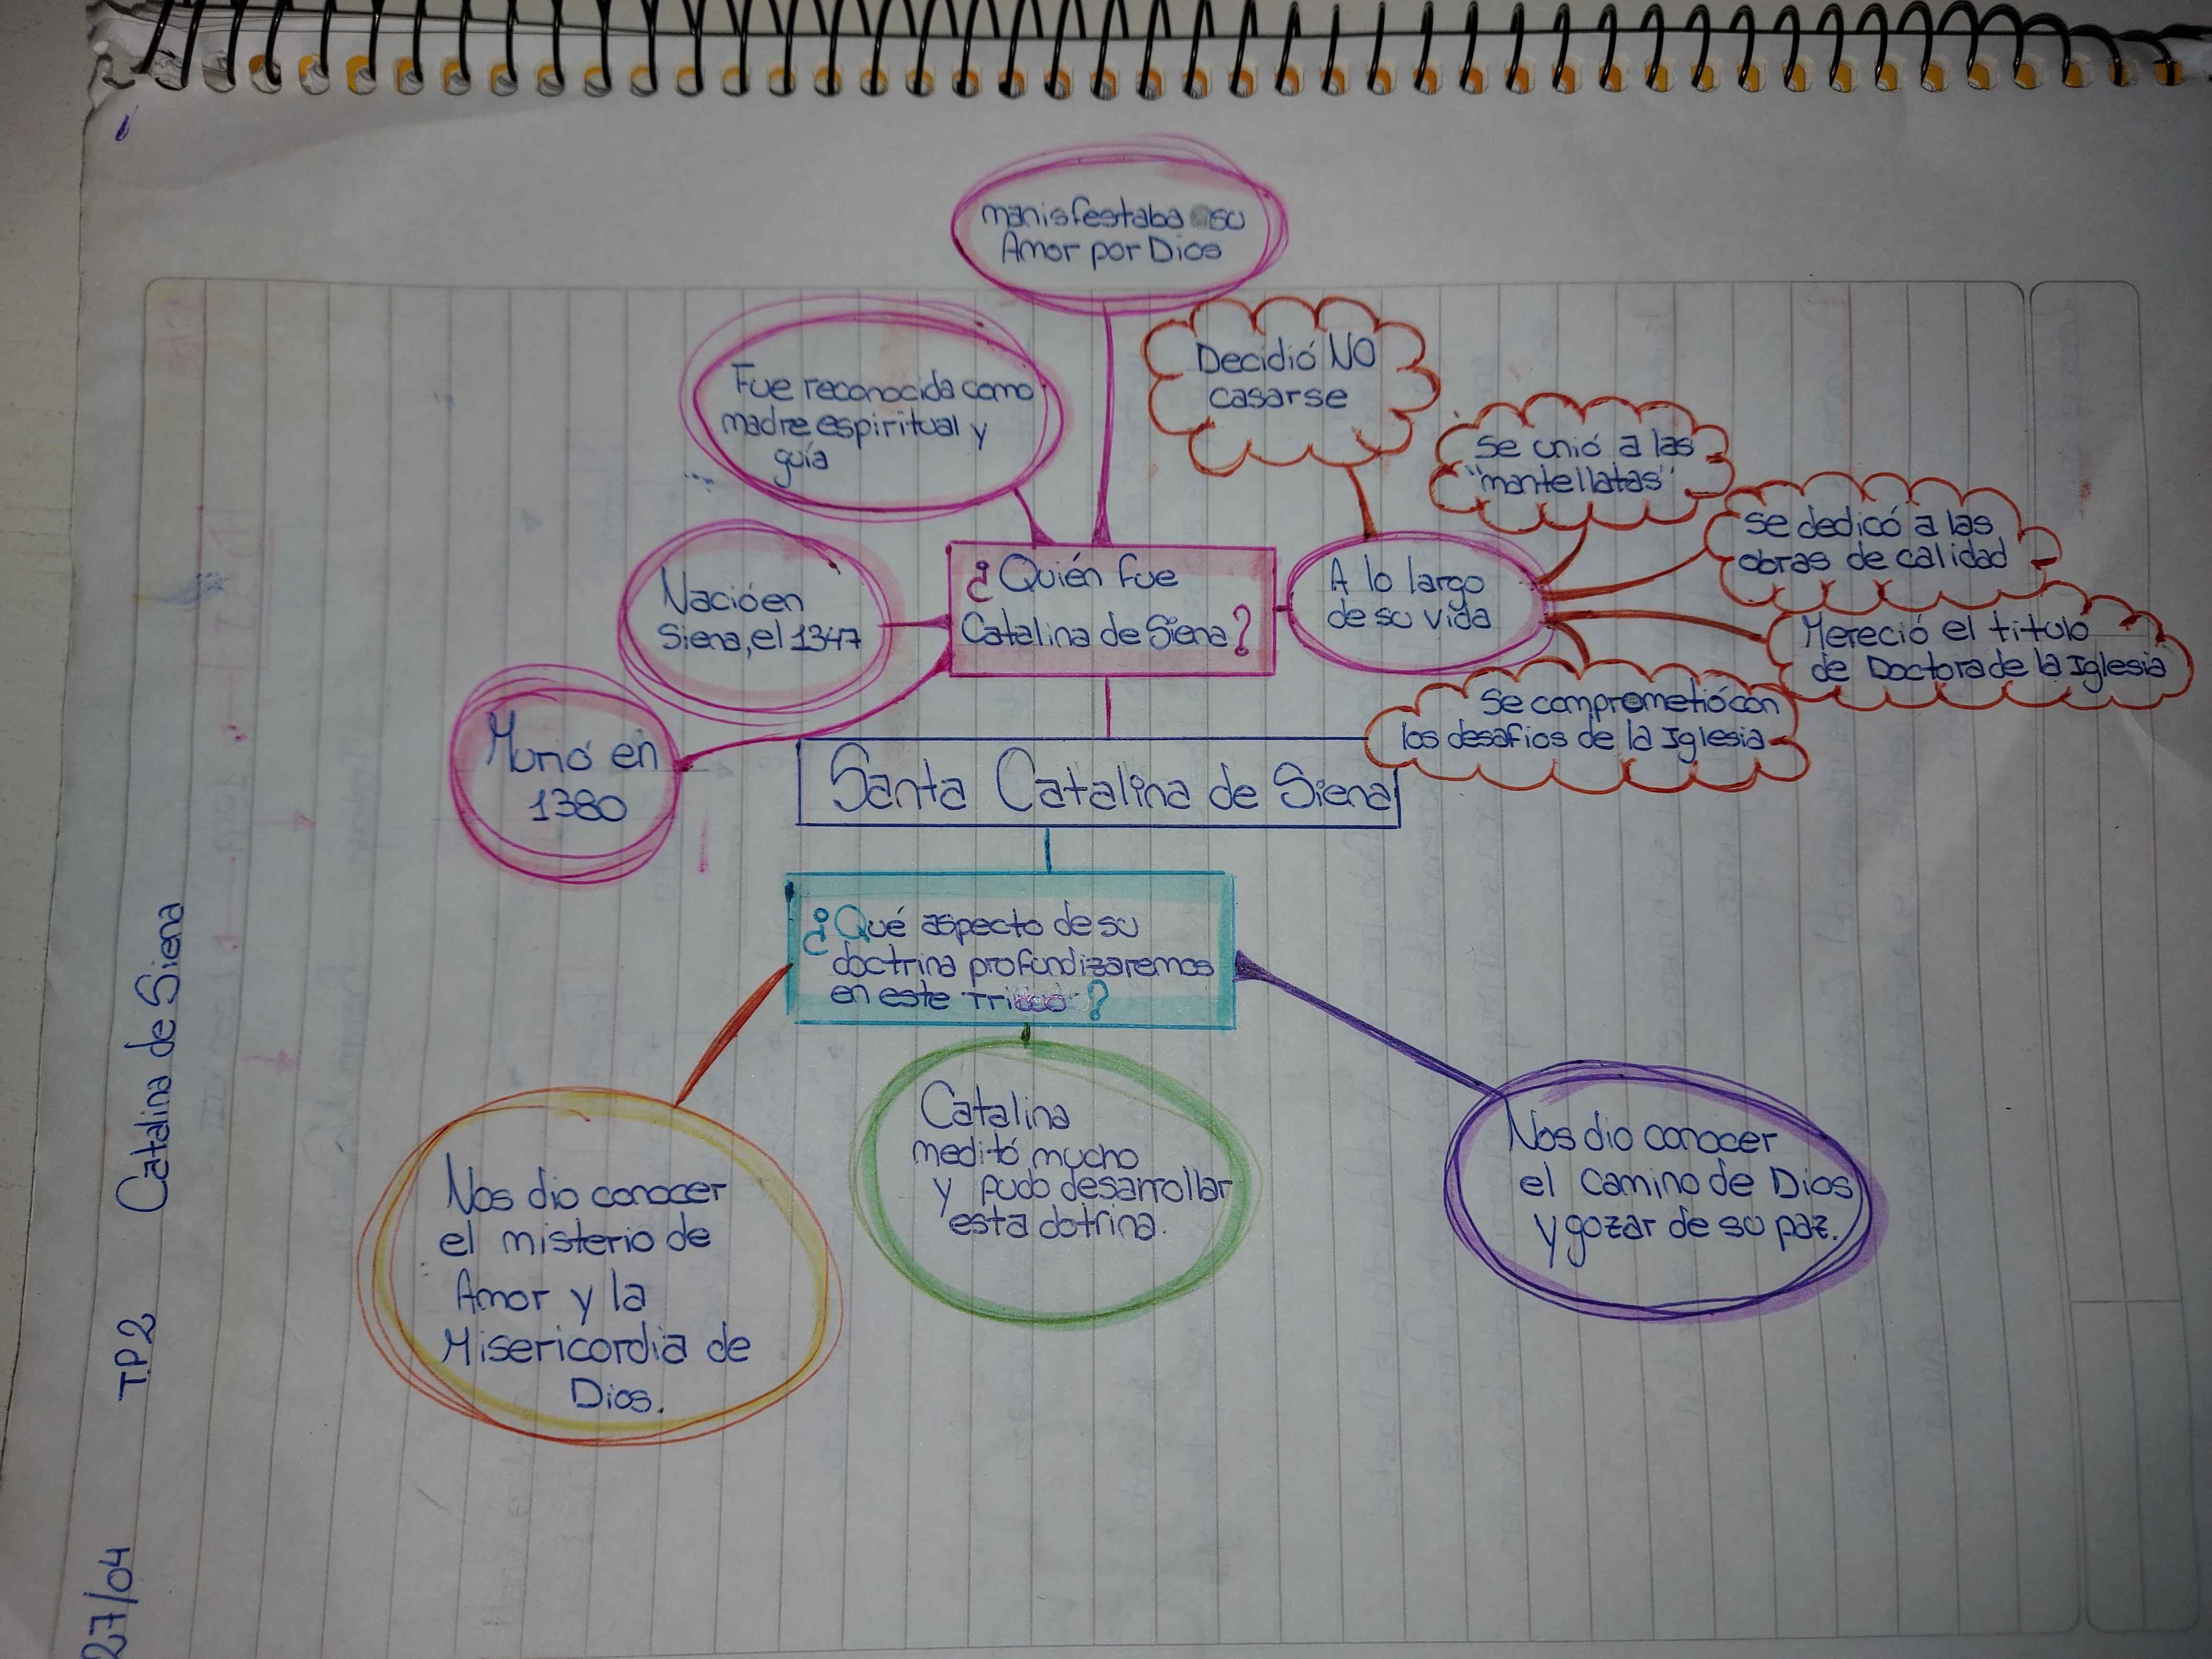 manisfestaba su
Amor por Dios
Decidió NO
casarse
Fue reconocida como
madre espiritual y
guía
se unió a las
"mantellatas"
se dedicó a las
obras de calidad
Nació en
Siena, el 1347
¿Quién fue
Catalina de Siena?
A lo largo
de su vida
Mereció el titulo
de Doctora de la Iglesia
se comprometió con
los desafios de la Iglesia
Murió en
1380
Santa Catalina de Siena
¿Qué aspecto de su
doctrina profundizaremos
en este Triduo?
Nos dio conocer
el misterio de
Amor y la
Misericordia de
Dios.
Catalina
meditó mucho
y pudo desarrollar
esta dotrina.
Nos dio conocer
el Camino de Dios
y gozar de su paz.
27/04 T.P.2 Catalina de Siena